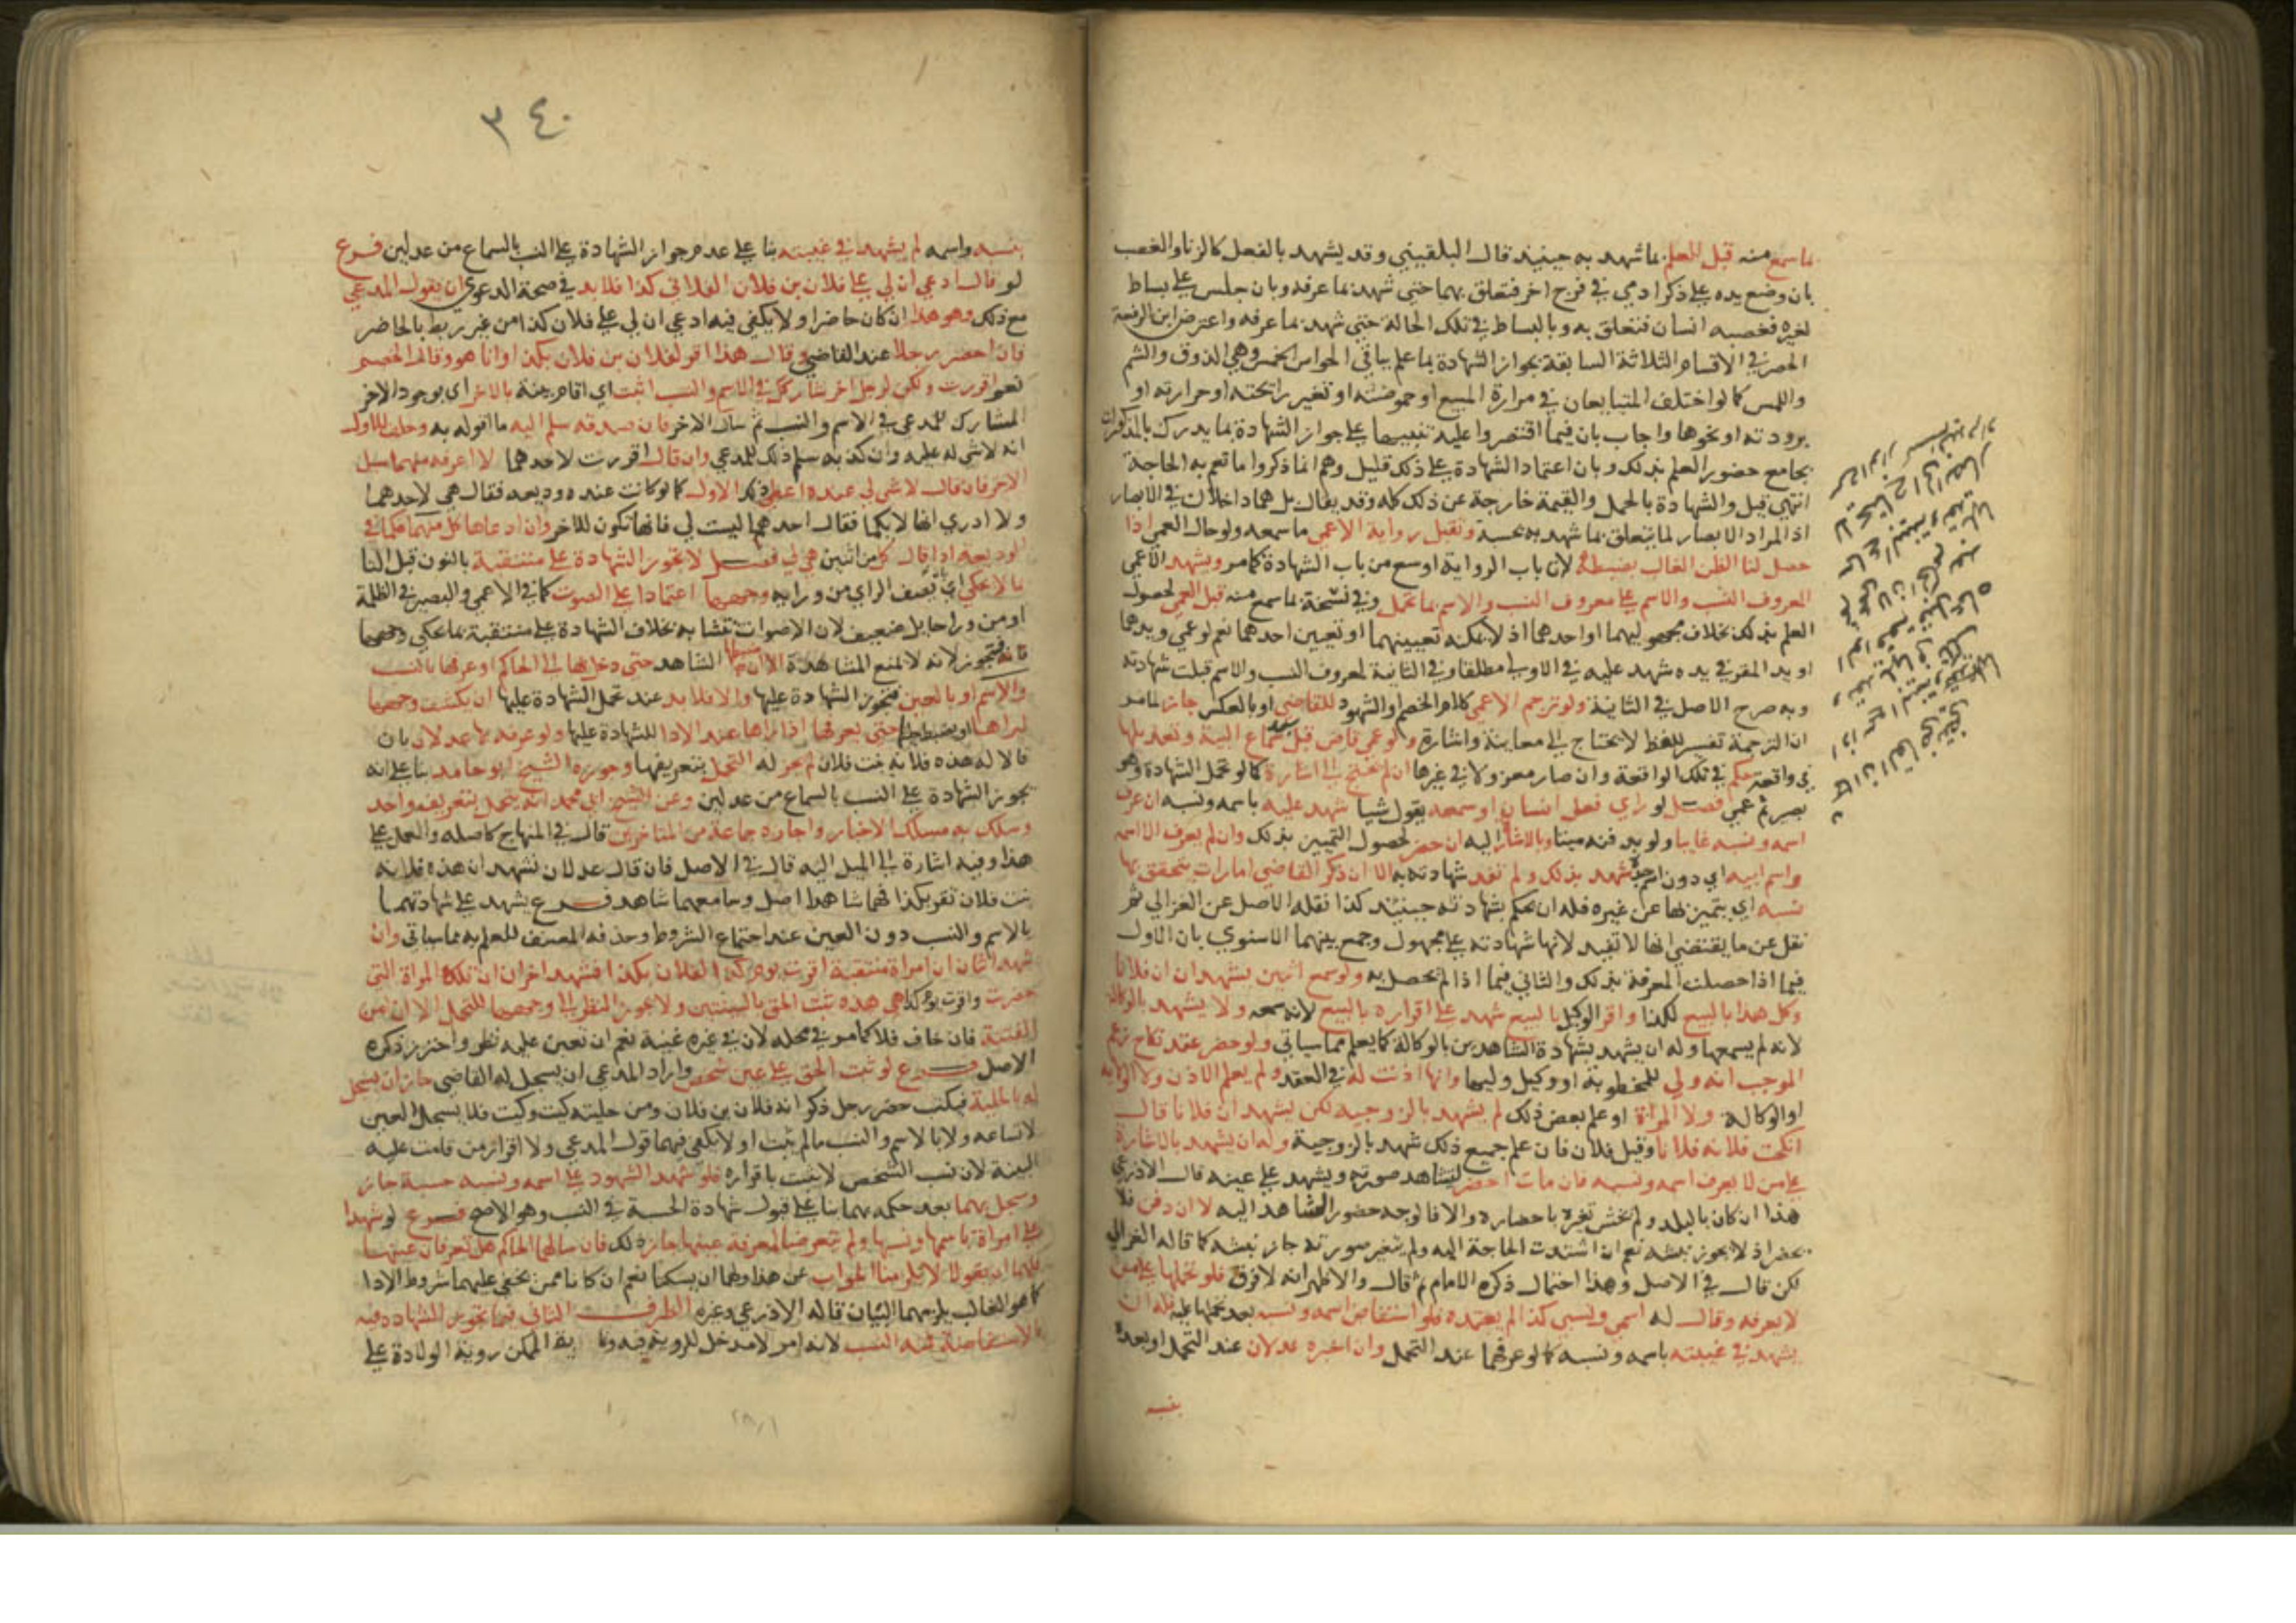 بما سمع منه قبل للعلم بما شهد به حينيذ قال البلقيني وقد يشهد بالفعل كالزنا والغصب
بان وضع يده على ذكر ادمي في فرج اخر فتعلق بهما حتي شهد بما عرفه وبان جلس على بساط
لغيره فغصبه انسان فتعلق به وبالبساط في تلك الحالة حتي شهد بما عرفه واعترض ابن الرفعة
الحصر في الاقسام الثلاثة السابقة بجواز الشهادة بما علم بباقي الحواس الخمس وهي الذوق والشم
واللمس كما لو اختلف المتبايعان في مرارة المبيع او حموضته او تغير رايحته او حرارته او
برودته او نحوها واجاب بان فيما اقتصروا عليه تنبيها على جواز الشهادة بما يدرك بالمذكورات
بجامع حضور العلم بذلك وبان اعتماد الشهادة على ذلك قليل وهم انما ذكروا ما تعم به الحاجة
انتهي قيل والشهادة بالحمل والقيمة خارجة عن ذلك كله وقد يقال بل هما داخلان في الابصار
اذ المراد الابصار لما يتعلق بما شهد به بحسبه وتقبل رواية الاعمي ما سمعه ولو حال العمي اذا
حصل لنا الظن الغالب بضبطه لان باب الرواية اوسع من باب الشهادة كما مر ويشهد الاعمي
المعروف النسب والاسم على معروف النسب والاسم بما تحمل وفي نسخة بما سمع منه قبل العمي لحصول
العلم بذلك بخلاف مجهوليهما او احدهما اذ لا يمكنه تعيينهما او تعيين احدهما نعم لو عمي ويدهما
او يد المقر في يده شهد عليه في الاولى مطلقا وفي الثانية لمعروف النسب والاسم قبلت شهادته
وبه صرح الاصل في الثانية ولو ترجم الاعمي كلام الخصم والشهود للقاضي او بالعكس جاز لما مر
ان الترجمة تفسير للفظ لا يحتاج الى معاينة واشارة ولو عمي قاض قبل سماع البينة وتعديلها
في واقعة حكم في تلك الواقعة وان صار معزولا في غيرها ان لم يحتج الى اشارة كما لو تحمل الشهادة وهو
بصير ثم عمي فصل لو راي فعل انسان او سمعه يقول شيا شهد عليه باسمه ونسبه ان عرف
اسمه ونسبه غايبا ولو بدفنه ميتا وبالاشارة اليه ان حضر لحصول التمييز بذلك وان لم يعرف الا اسمه
واسم ابيه اي دون اسم جده شهد بذلك ولم تفد شهادته به الا ان ذكر القاضي امارات يتحقق بها
نسبه اي يتميز بها عن غيره فله ان يحكم بشهادته حينئذ كذا نقله الاصل عن الغزالي ثم
نقل عن ما يقتضي انها لا تفيد لانها شهادته على مجهول وجمع بينهما الاسنوي بان الاول
فيما اذا حصلت المعرفة بذلك والثاني فيما اذا لم تحصل به ولو سمع اثنين يشهدان ان فلانا
وكل هذا بالبيع لكذا واقر الوكيل بالبيع شهد على اقراره بالبيع لانه سمعه ولا يشهد بالوكالة
لانه لم يسمعها وله ان يشهد بشهادة الشاهدين بالوكالة كما يعلم مما سياتي ولو حضر عقد نكاح زعم
الموجب انه ولي للمخطوبة او وكيل وليها وانها اذنت له في العقد ولم يعلم الاذن ولا الولاية
او الوكالة ولا المراة او علم بعض ذلك لم يشهد بالزوجية لكن يشهد ان فلانا قال
انكحت فلانة فلانا وقبل فلان فان علم جميع ذلك شهد بالزوجية وله ان يشهد بالاشارة
على من لا يعرف اسمه ونسبه فان مات احضر ليشاهد صورته ويشهد على عينه قال الاذرعي
هذا ان كان بالبلد ولم يخش تغيره باحضاره والا فالوجه حضور الشاهد اليه لا ان دفن فلا
يحضر اذ لا يجوز نبشه نعم ان اشتدت الحاجة اليه ولم يتغير صورته جاز نبشه كما قاله الغزالي
لكن قال في الاصل وهذا احتمال ذكره الامام ثم قال والاظهر انه لا فرق فلو تحملها على من
لا يعرفه وقال له اسمي ونسبي كذا لم يعتمده فلو استفاض اسمه ونسبه بعد تحملها عليه فله ان
يشهد في غيبته باسمه ونسبه كما لو عرفهما عند التحمل وان اخبره عدلان عند التحمل او بعده
بنسبه
٣٤٠
بنسبه واسمه لم يشهد في غيبته بنا على عدم جواز الشهادة على النسب بالسماع من عدلين فرع
لو قال ادعي ان لي على فلان بن فلان الفلاني كذا فلا بد في صحة الدعوي ان يقول المدعي
مع ذلك وهو هذا ان كان حاضرا ولا يكفي فيه ادعي ان لي على فلان كذا من غير ربط بالحاضر
فان احضر رجلا عند القاضي وقال هذا اقر لفلان بن فلان بكذا وانا هو وقال الخصم
نعم اقررت ولكن لرجل اخر يشاركك في الاسم والنسب اثبت اي اقام بينة بالاخر اي بوجود الاخر
المشارك للمدعي في الاسم والنسب ثم سال الاخر فان صدقه سلم اليه ما اقر له به وحلف للاول
انه لا شي له عليه وان كذبه سلم ذلك للمدعي وان قال اقررت لاحدهما لا اعرفه منهما سيل
الاخر فان قال لا شي لي عنده اعطي ذلك الاول كما لو كانت عنده وديعة فقال هي لاحدهما
ولا ادري انها لايكما فقال احدهما ليست لي فانها تكون للاخر وان ادعاها كل منهما فكما في
الوديعة اذا قال كل من اثنين هي لي فصل لا تجوز الشهادة على متنقبة بالنون قبل التا
بالا يحكي اي يصف الراي من ورايه وجهها اعتمادا على الصوت كما في الاعمي والبصير في الظلمة
او من ورا حايل ضعيف لان الاصوات تتشابه بخلاف الشهادة على متنقبة بما يحكي وجهها
فانه تجوز لانه لا يمنع المشاهدة الا ان ضبطها الشاهد حتى دخل بها الى الحاكم او عرفها بالنسب
والاسم او بالعين فتجوز الشهادة عليها والا فلا بد عند تحمل الشهادة عليها ان يكشف وجهها
ليراها ويضبط حليتها حتى يعرفها اذا راها عند الادا للشهادة عليها ولو عرفه بها عدلان بان
قالا له هذه فلانة بنت فلان لم يجز له التحمل بتعريفهما وجوزه الشيخ ابو حامد بنا على انه
يجوز الشهادة على النسب بالسماع من عدلين وعن الشيخ ابي محمد انه يتحمل بتعريف واحد
وسلك به مسلك الاخبار واجازه جماعة من المتاخرين قال في المنهاج كاصله والعمل على
هذا وفيه اشارة الى الميل اليه قال في الاصل فان قال عدلان نشهد ان هذه فلانة
بنت فلان تقر بكذا فهما شاهدا اصل وسامعهما شاهد فرع يشهد على شهادتهما
بالاسم والنسب دون العين عند اجتماع الشروط وحذفه المصنف للعلم به مما سياتي وان
شهد اثنان ان امراة متنقبة اقرت يوم كذا لفلان بكذا فشهد اخران ان تلك المراة التي
حضرت واقرت يوم كذا هي هذه ثبت الحق بالبينتين ولا يجوز النظر الى وجهها للتحمل الا ان امن
الفتنة فان خاف فلا كما مر في محله لان في غيره غنية نعم ان تعين عليه نظر واحترز ذكره
الاصل فرع لو ثبت الحق على عين شخص واراد المدعي ان يسجل له القاضي جاز ان يسجل
له بالحلية فيكتب حضر رجل ذكر انه فلان بن فلان ومن حليته كيت وكيت فلا يسجل العين
لامتناعه ولا بالاسم والنسب ما لم يثبت او لا يكفي فيهما قول المدعي ولا اقرار من قامت عليه
البينة لان نسب الشخص لا يثبت باقراره فلو شهد الشهود على اسمه ونسبه حسبة جاز
وسجل بهما بعد حكمه بهما بنا على قبول شهادة الحسبة في النسب وهو الاصح فرع لو شهدا
على امراة باسمها ونسبها ولم يتعرضا لمعرفة عينها جاز ذلك فان سالهما الحاكم هل تعرفان عينها
فلهما ان يقولا لا يلزمنا الجواب عن هذا ولهما ان يسكتا نعم ان كانا ممن يخفي عليهما شروط الادا
كما هو الغالب يلزمهما البيان قاله الاذرعي وغيره الطرف الثاني فيما تجوز الشهادة فيه
بالاستفاضة فمنه النسب لانه امر لا مدخل للروية فيه الممكن روية الولادة على